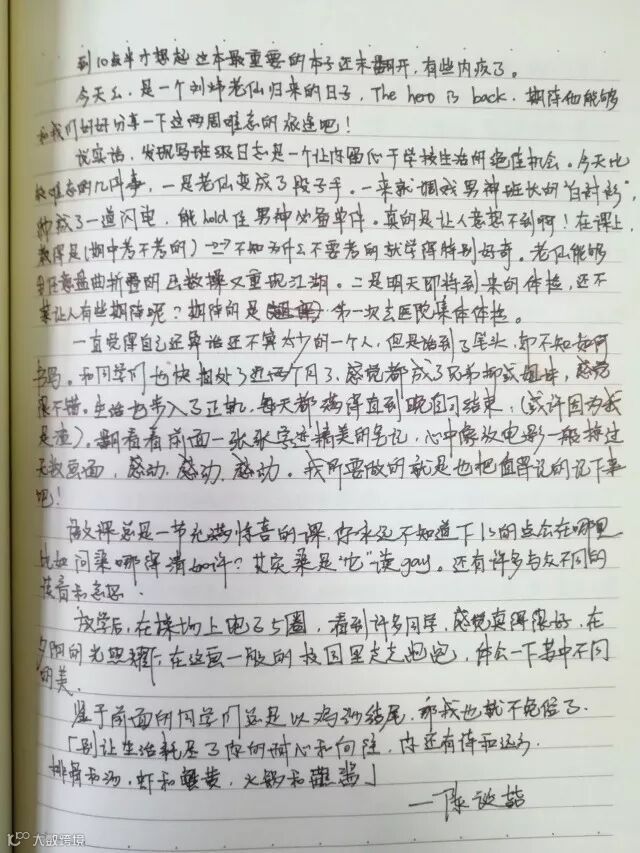 到10点半才想起这本最重要的本子还未翻开，有些内疚了。
今天么，是一个刘炜老仙归来的日子，The hero is back. 期阵他能够
和我们好好分享一下这两周难忘的旅途吧！
说实话，发现写班级日志是一个让你留心于学校生活的绝佳机会。今天比
较难忘的几件事，一是老仙变成了段子手。一来就调戏男神班长的"白衬衫"，
成了一道闪电，能hold住男神必备单件。真的是让人意想不到啊！在课上，
教得是(期中考不考的)不知为什么不要考的就学得特别好奇。老仙能够
任意盘曲折叠的函数操又重现江湖。二是明天即将到来的体检，还不
让人有些期阵呢？期阵的是第一次去医院集体体检。
一直觉得自己还算话还不算太少的一个人，但是话到了笔头，却不知如何
书写。和同学们也快相处了近两个月了，感觉都成了兄弟抑或姐妹，感觉
很不错。生活也步入了正轨，每天都得直到晚自习结束，(或许因为我
是渣)。翻看着前面一张张字迹精美的笔记，心中像放电影一般掠过
无数画面，感动，感动，感动。我所要做的就是也把值得记的记下来
吧！
语文课总是一节充满惊喜的课，你永远不知道下1s的点会在哪里
比如问渠哪得清如许？其实渠是"它"读gay。还有许多与众不同的
读音和意思.
放学后，在操场上跑了5圈，看到许多同学，感觉真得很好，在
夕阳的光照耀下，在这画一般的校园里走走跑跑，体会一下其中不同
的美.
鉴于前面的同学们总是以鸡汤结尾，那我也就不免俗了.
「别让生活耗尽了你的耐心和向往，你还有诗和远方
排骨和汤，虾和蟹黄，火锅和蘸酱」
—陈
大数跨境